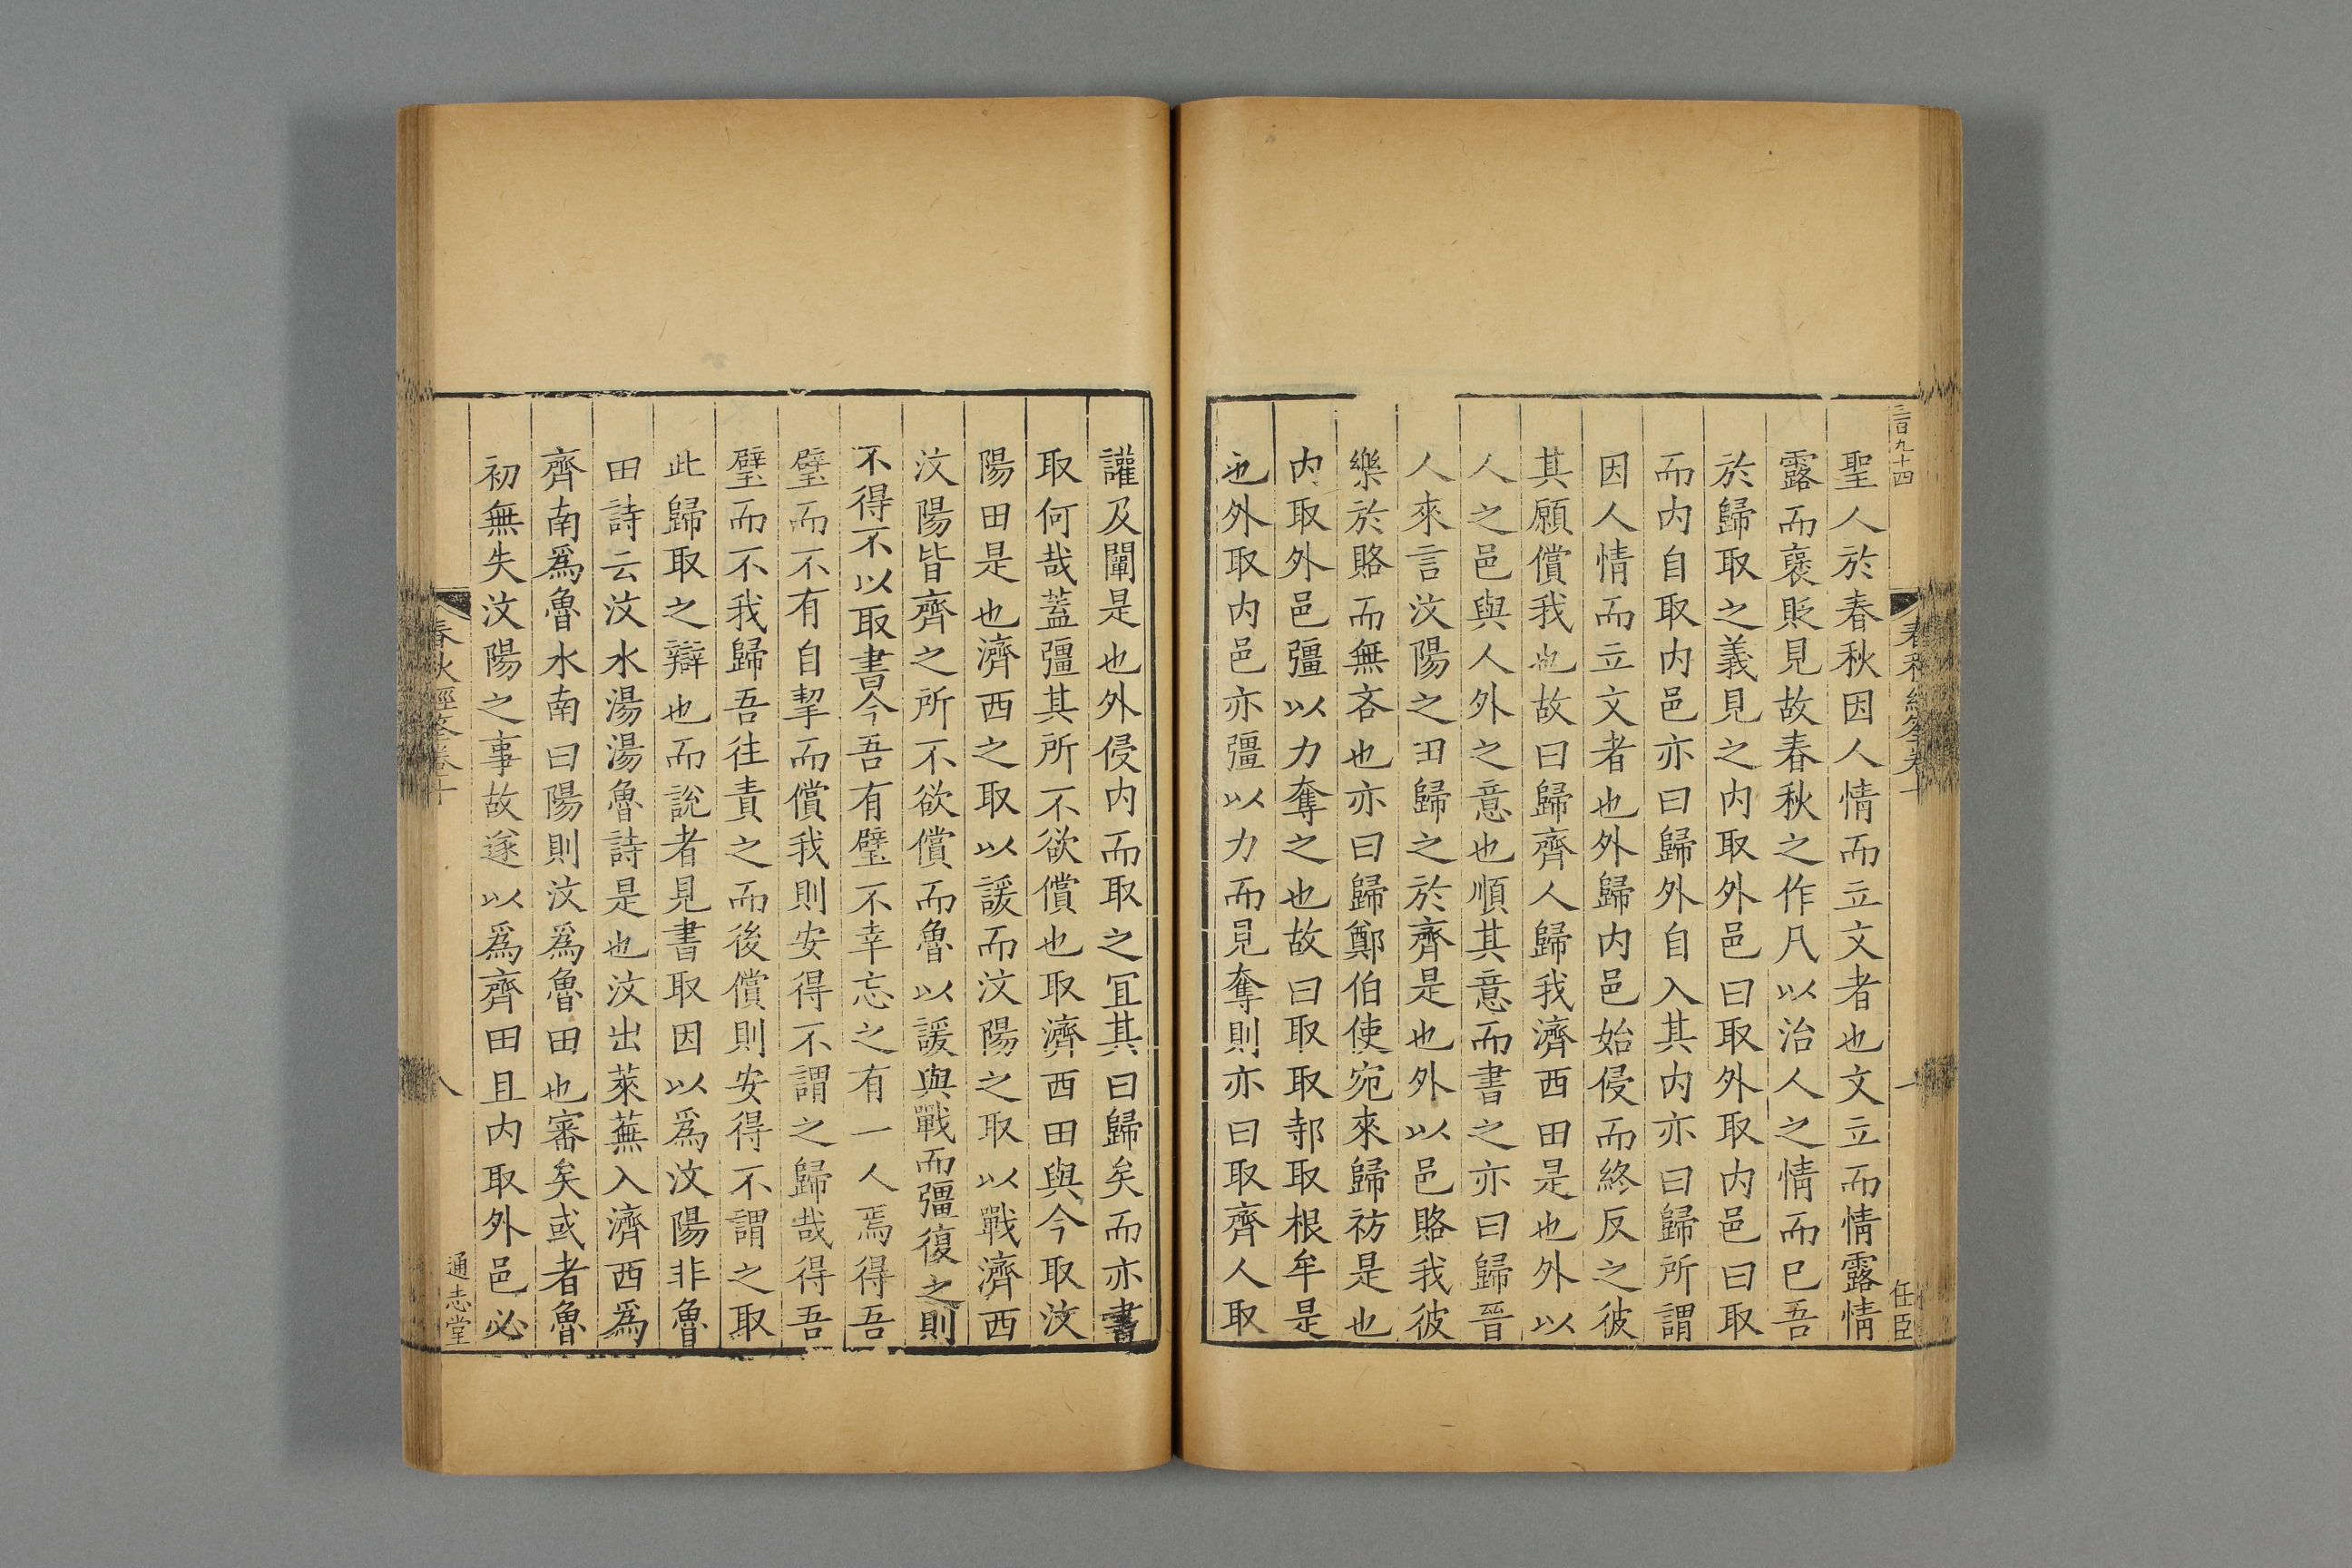 三百九十四
聖人於春秋因人情而立文者也文立而情露情
露而襃貶見故春秋之作凡以治人之情而已吾
於歸取之義見之内取外邑曰取外取内邑曰取
而内自取内邑亦曰歸外自入其内亦曰歸所謂
因人情而立文者也外歸内邑始侵而終反之彼
其願償我也故曰歸齊人歸我濟西田是也外以
人之邑與人外之意也順其意而書之亦曰歸晉
人來言汶陽之田歸之於齊是也外以邑賂我彼
樂於賂而無吝也亦曰歸鄭伯使宛來歸祊是也
内取外邑彊以力奪之也故曰取取邿取根牟是
也外取内邑亦彊以力而見奪則亦曰取齊人取
春秋經筌卷十
任臣
讙及闡是也外侵内而取之宜其曰歸矣而亦書
取何哉蓋彊其所不欲償也取濟西田與今取汶
陽田是也濟西之取以諼而汶陽之取以戰濟西
汶陽皆齊之所不欲償而魯以諼與戰而彊復之則
不得不以取書今吾有璧不幸忘之有一人焉得吾
璧而不有自挈而償我則安得不謂之歸哉得吾
璧而不我歸吾往責之而後償則安得不謂之取
此歸取之辯也而說者見書取因以爲汶陽非魯
田詩云汶水湯湯魯詩是也汶出萊蕪入濟西爲
齊南爲魯水南曰陽則汶爲魯田也審矣或者魯
初無失汶陽之事故遂以爲齊田且内取外邑必
春秋經筌卷十
八
通志堂